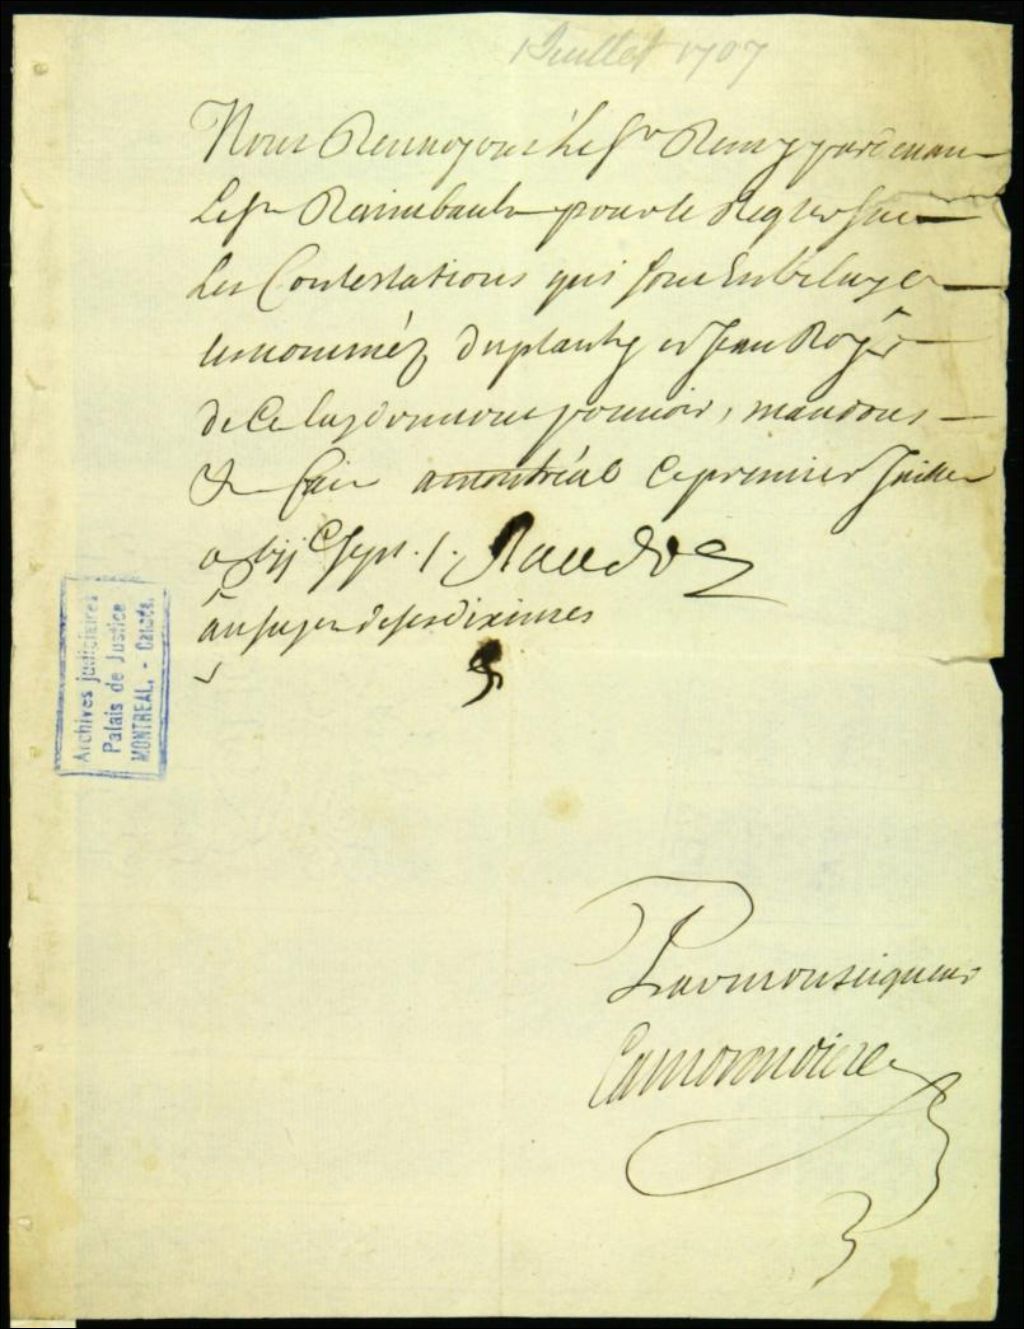 1 Juillet 1707
Nous Renvoyons Le Sr Remy
Le Sr Raimbault pour le Regler Sur
Les Contestations qui sont Entre luy et
les nommés duplanty et Jean Roy
de Ce luy donnons pouvoir, mandons
fait a montréal Ce premier Juillet
Sept. /. Raudot
au sujet de ses diximes
Par monseigneur
Lamorandiere
Archives judiciaires
Palais de Justice
MONTREAL. - Canada.